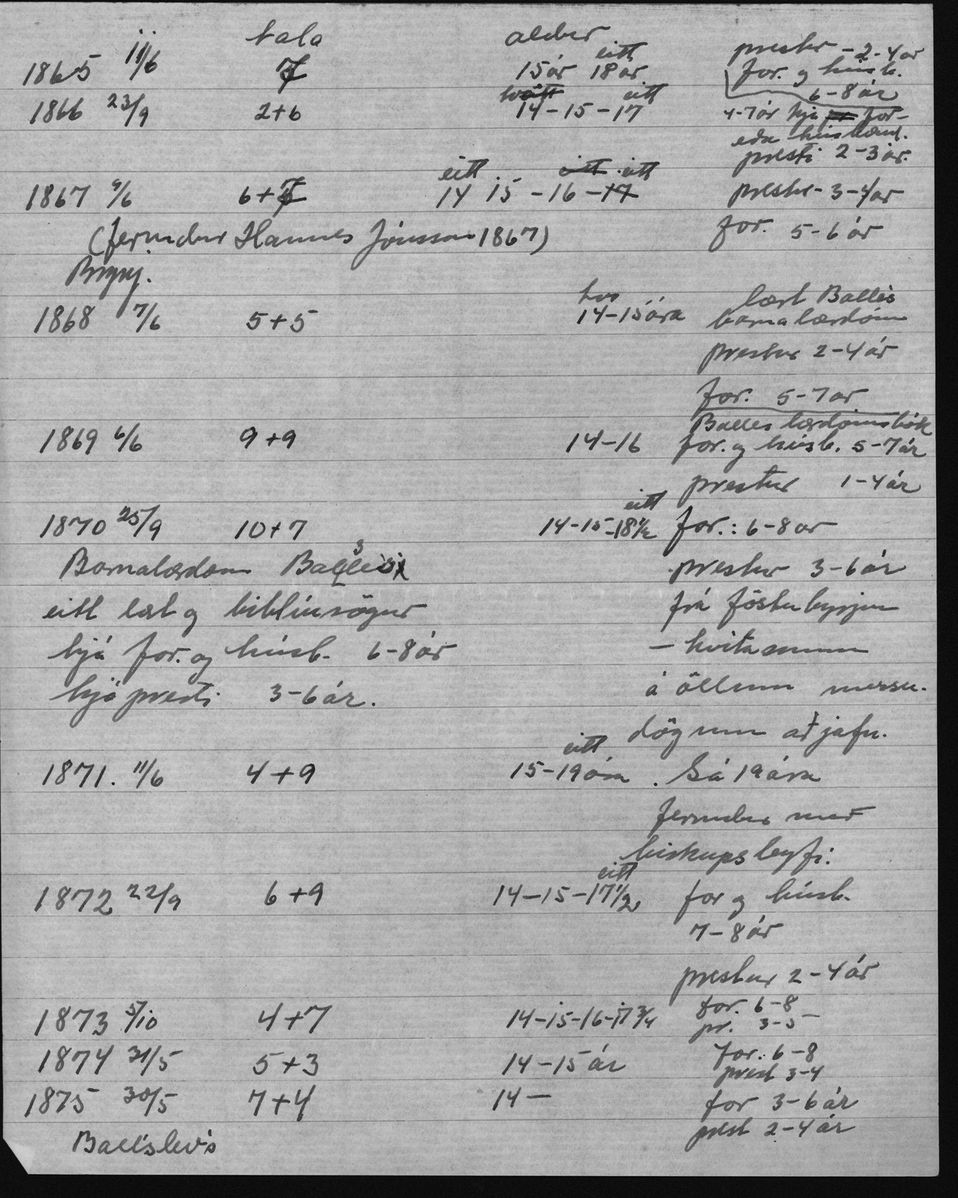 tala aldur
1865 11/6 7 15 ár eitt 18 ár prestur - 2-4 ár
for. og húsb.
6-8 ár
1866 23/9 2+6 tvött 14-15-17 eitt 4-7 ár hjá for-
eða húsbænd.
presti 2-3 ár.
1867 9/6 6+7 eitt 14 15-16-17 eitt eitt prestur - 3-4 ár
(fermdur Hannes Jónsson 1867) for. 5-6 ár
Brynj.
1868 7/6 5+5 14-15 ára lært Balles
barnalærdóm
prestur 2-4 ár
for. 5-7 ár
Balles lærdómsbók
1869 6/6 9+9 14-16 for. og húsb. 5-7 ár
prestur 1-4 ár
1870 25/9 10+7 14-15-18 1/2 eitt for.: 6-8 ár
Barnalærdom Balles prestur 3-6 ár
eitt lært og biblíusögur frá föstubyrjun
hjá for. og húsb. 6-8 ár - hvítasunnu
hjá presti 3-6 ár. á öllum messu-
dögunum að jafn.
1871. 11/6 4+9 15-19 ára eitt. Sá 19 ára
fermdur með
biskupsleyfi.
1872 22/9 6+9 14-15-17 1/2 eitt for og húsb.
7-8 ár
prestur 2-4 ár
1873 5/10 4+7 14-15-16-17 3/4 for. 6-8
pr. 3-5 -
1874 31/5 5+3 14-15 ár for. 6-8
prest 3-4
1875 30/5 7+4 14- for 3-6 ár
prest 2-4 ár
Ballslev's